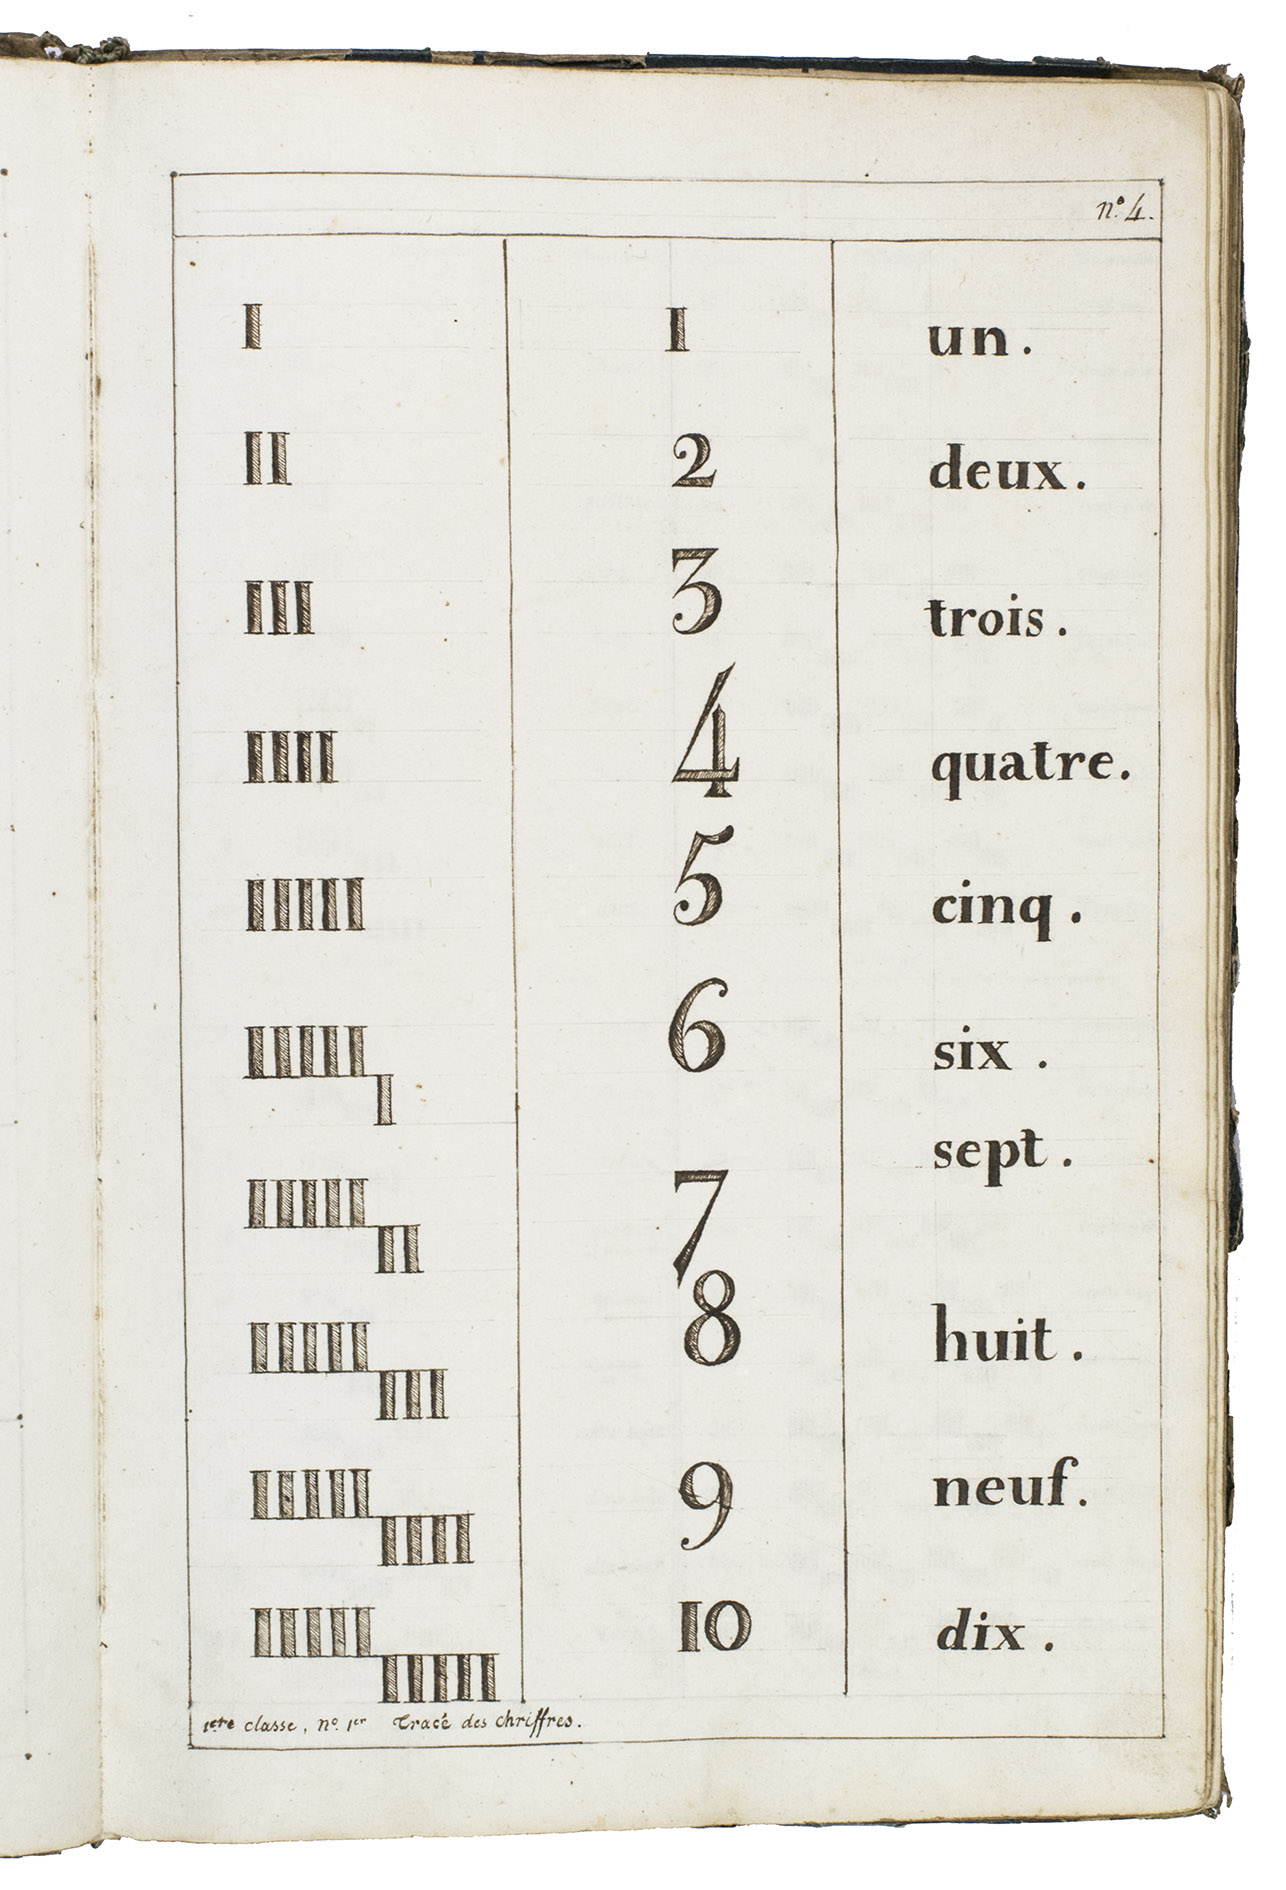 n.º 4.
I 1 un.
II 2 deux.
III 3 trois.
IIII 4 quatre.
IIIII 5 cinq.
IIIIII 6 six.
IIIIIII 7 sept.
IIIIIIII 8 huit.
IIIIIIIII 9 neuf.
IIIIIIIIII 10 dix.
1ère classe, nº 1er Tracé des chriffres.